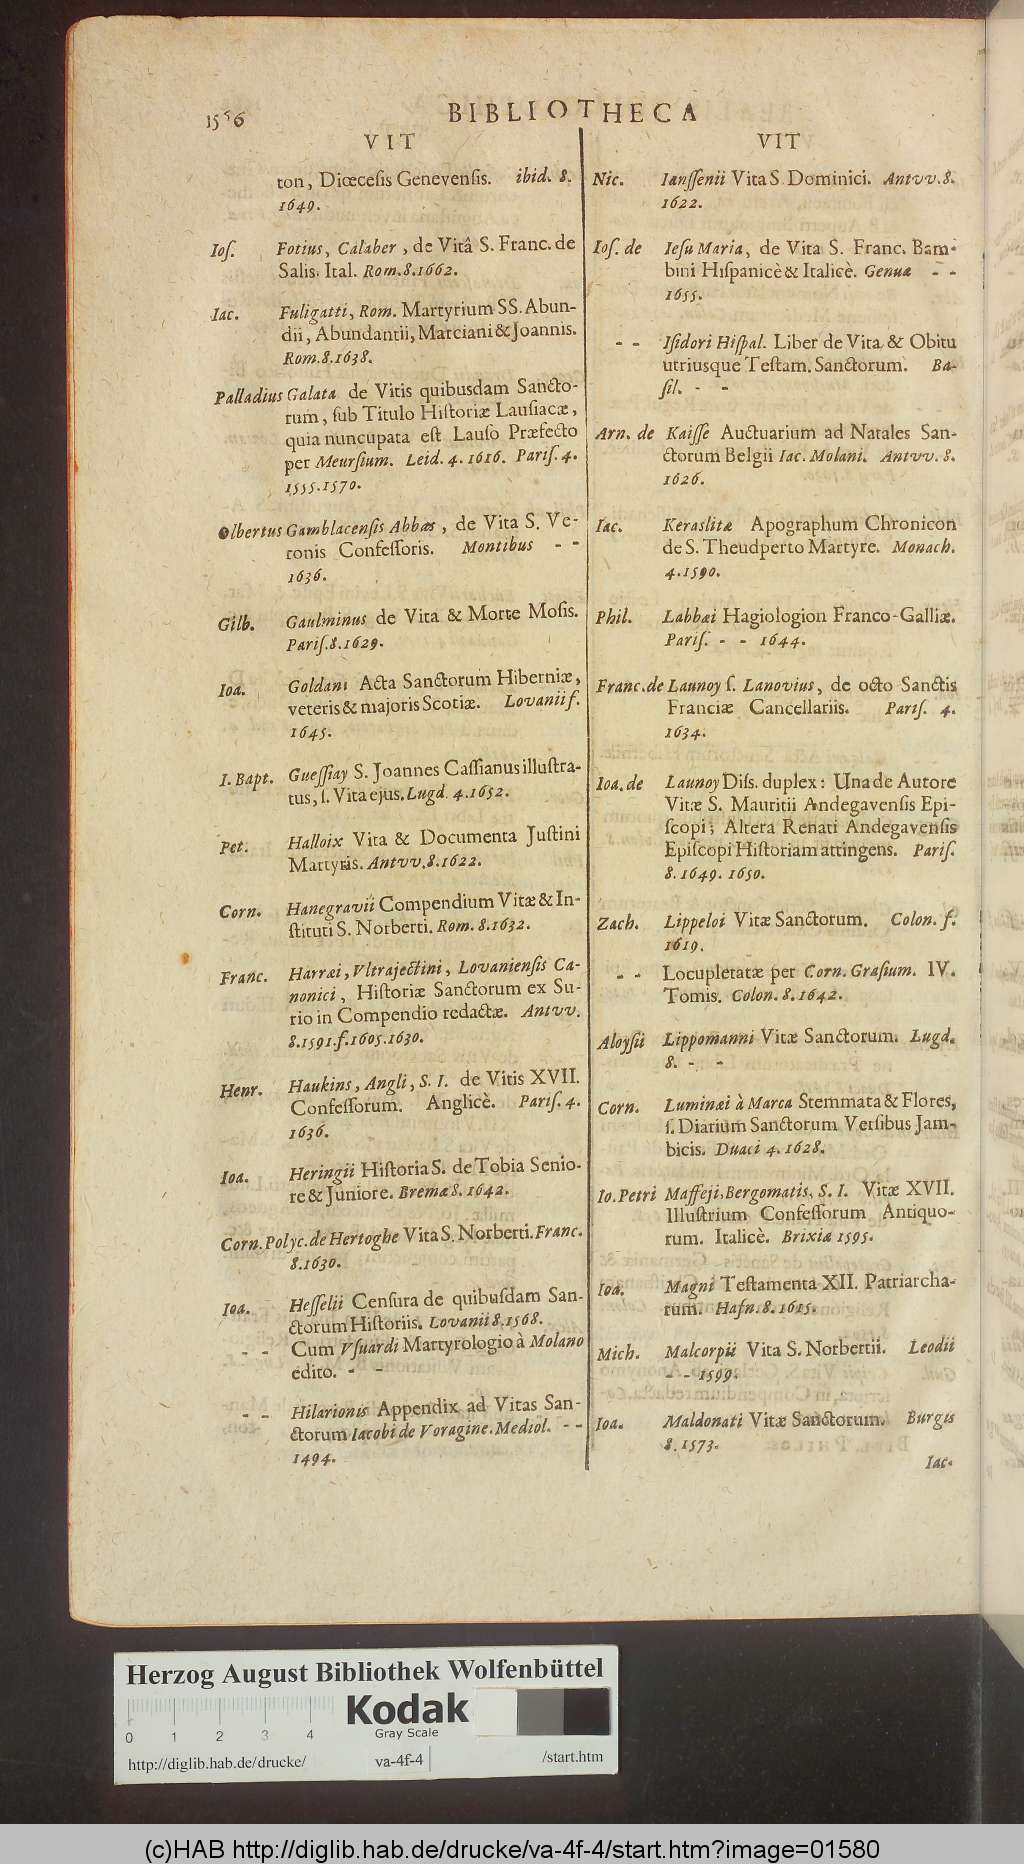 1556
BIBLIOTHECA
VIT
ton, Diœcesis Genevensis. ibid. 8.
1649.
Ios. Fotius, Calaber, de Vitâ S. Franc. de
Salis. Ital. Rom. 8. 1662.
Iac. Fuligatti, Rom. Martyrium SS. Abun-
dii, Abundantii, Marciani & Joannis.
Rom. 8. 1638.
Palladius Galata de Vitis quibusdam Sancto-
rum, sub Titulo Historiæ Lausiacæ,
quia nuncupata est Lauso Præfecto
per Meursium. Leid. 4. 1616. Paris. 4.
1555. 1570.
Olbertus Gamblacensis Abbas, de Vita S. Ve-
ronis Confessoris. Montibus - -
1636.
Gilb. Gaulminus de Vita & Morte Mosis.
Paris. 8. 1629.
Ioa. Goldani Acta Sanctorum Hiberniæ,
veteris & majoris Scotiæ. Lovanii f.
1645.
I. Bapt. Guessiay S. Joannes Cassianus illustra-
tus, s. Vita ejus. Lugd. 4. 1652.
Pet. Halloix Vita & Documenta Justini
Martyris. Antvv. 8. 1622.
Corn. Hanegravii Compendium Vitæ & In-
stituti S. Norberti. Rom. 8. 1632.
Franc. Harræi, Vltrajectini, Lovaniensis Ca-
nonici, Historiæ Sanctorum ex Su-
rio in Compendio redactæ. Antvv.
8. 1591. f. 1605. 1630.
Henr. Haukins, Angli, S. I. de Vitis XVII.
Confessorum. Anglicè. Paris. 4.
1636.
Ioa. Heringii Historia S. de Tobia Senio-
re & Juniore. Bremæ 8. 1642.
Corn. Polyc. de Hertoghe Vita S. Norberti. Franc.
8. 1630.
Ioa. Hesselii Censura de quibusdam San-
ctorum Historiis. Lovanii 8. 1568.
- - Cum Vsuardi Martyrologio à Molano
edito. - -
- - Hilarionis Appendix ad Vitas San-
ctorum Iacobi de Voragine. Mediol. - -
1494.
VIT
Nic. Ianssenii Vita S Dominici. Antvv. 8.
1622.
Ios. de Iesu Maria, de Vita S. Franc. Bam-
bini Hispanicè & Italicè. Genuæ - -
1655.
- - Isidori Hispal. Liber de Vita & Obitu
utriusque Testam. Sanctorum. Ba-
sil. - -
Arn. de Kaisse Auctuarium ad Natales San-
ctorum Belgii Iac. Molani. Antvv. 8.
1626.
Iac. Keraslitæ Apographum Chronicon
de S. Theudperto Martyre. Monach.
4. 1590.
Phil. Labbæi Hagiologion Franco-Galliæ.
Paris. - - 1644.
Franc. de Launoy s. Lanovius, de octo Sanctis
Franciæ Cancellariis. Paris. 4.
1634.
Ioa. de Launoy Diss. duplex: Una de Autore
Vitæ S. Mauritii Andegavensis Epi-
scopi; Altera Renati Andegavensis
Episcopi Historiam attingens. Paris.
8. 1649. 1650.
Zach. Lippeloi Vitæ Sanctorum. Colon. f.
1619.
- - Locupletatæ per Corn. Grasium. IV.
Tomis. Colon. 8. 1642.
Aloysii Lippomanni Vitæ Sanctorum. Lugd.
8. - -
Corn. Luminæi à Marca Stemmata & Flores,
s. Diarium Sanctorum Versibus Jam-
bicis. Duaci 4. 1628.
Io. Petri Maffeji, Bergomatis, S. I. Vitæ XVII.
Illustrium Confessorum Antiquo-
rum. Italicè. Brixiæ 1595.
Ioa. Magni Testamenta XII. Patriarcha-
rum. Hafn. 8. 1615.
Mich. Malcorpii Vita S. Norbertii. Leodii
- - 1599.
Ioa. Maldonati Vitæ Sanctorum. Burgis
8. 1573.
Iac.
Herzog August Bibliothek Wolfenbüttel
Kodak
Gray Scale
0 1 2 3 4
http://diglib.hab.de/drucke/ va-4f-4 /start.htm
(c)HAB http://diglib.hab.de/drucke/va-4f-4/start.htm?image=01580